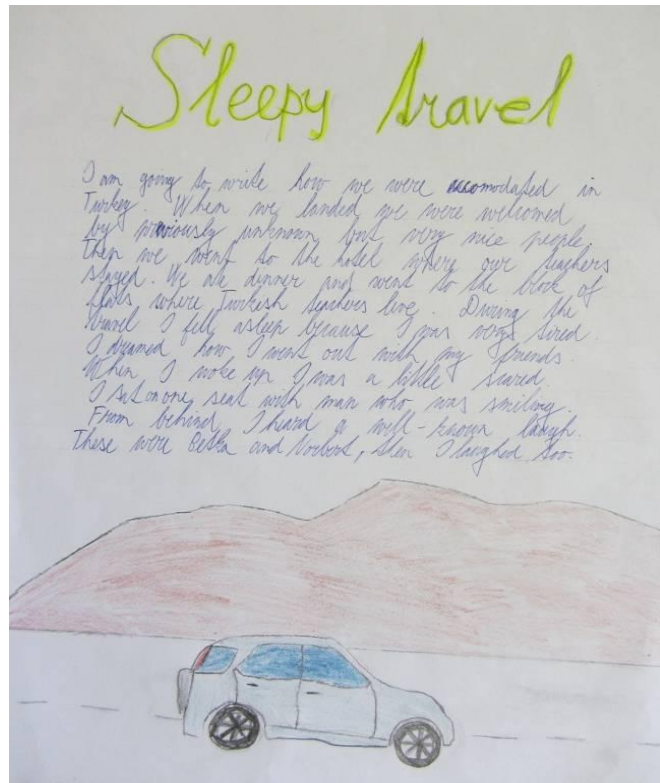 Sleepy travel
I am going to write how we were accomodated in
Turkey. When we landed we were welcomed
by previously unknown but very nice people.
Then we went to the hotel where our teachers
stayed. We ate dinner and went to the block of
flats where Turkish teachers live. During the
travel I fell asleep because I was very tired.
I dreamed how I went out with my friends.
When I woke up I was a little scared.
I sat on one seat with man who was smiling.
From behind I heard a well-known laugh.
These were and Norbert, then I laughed too.